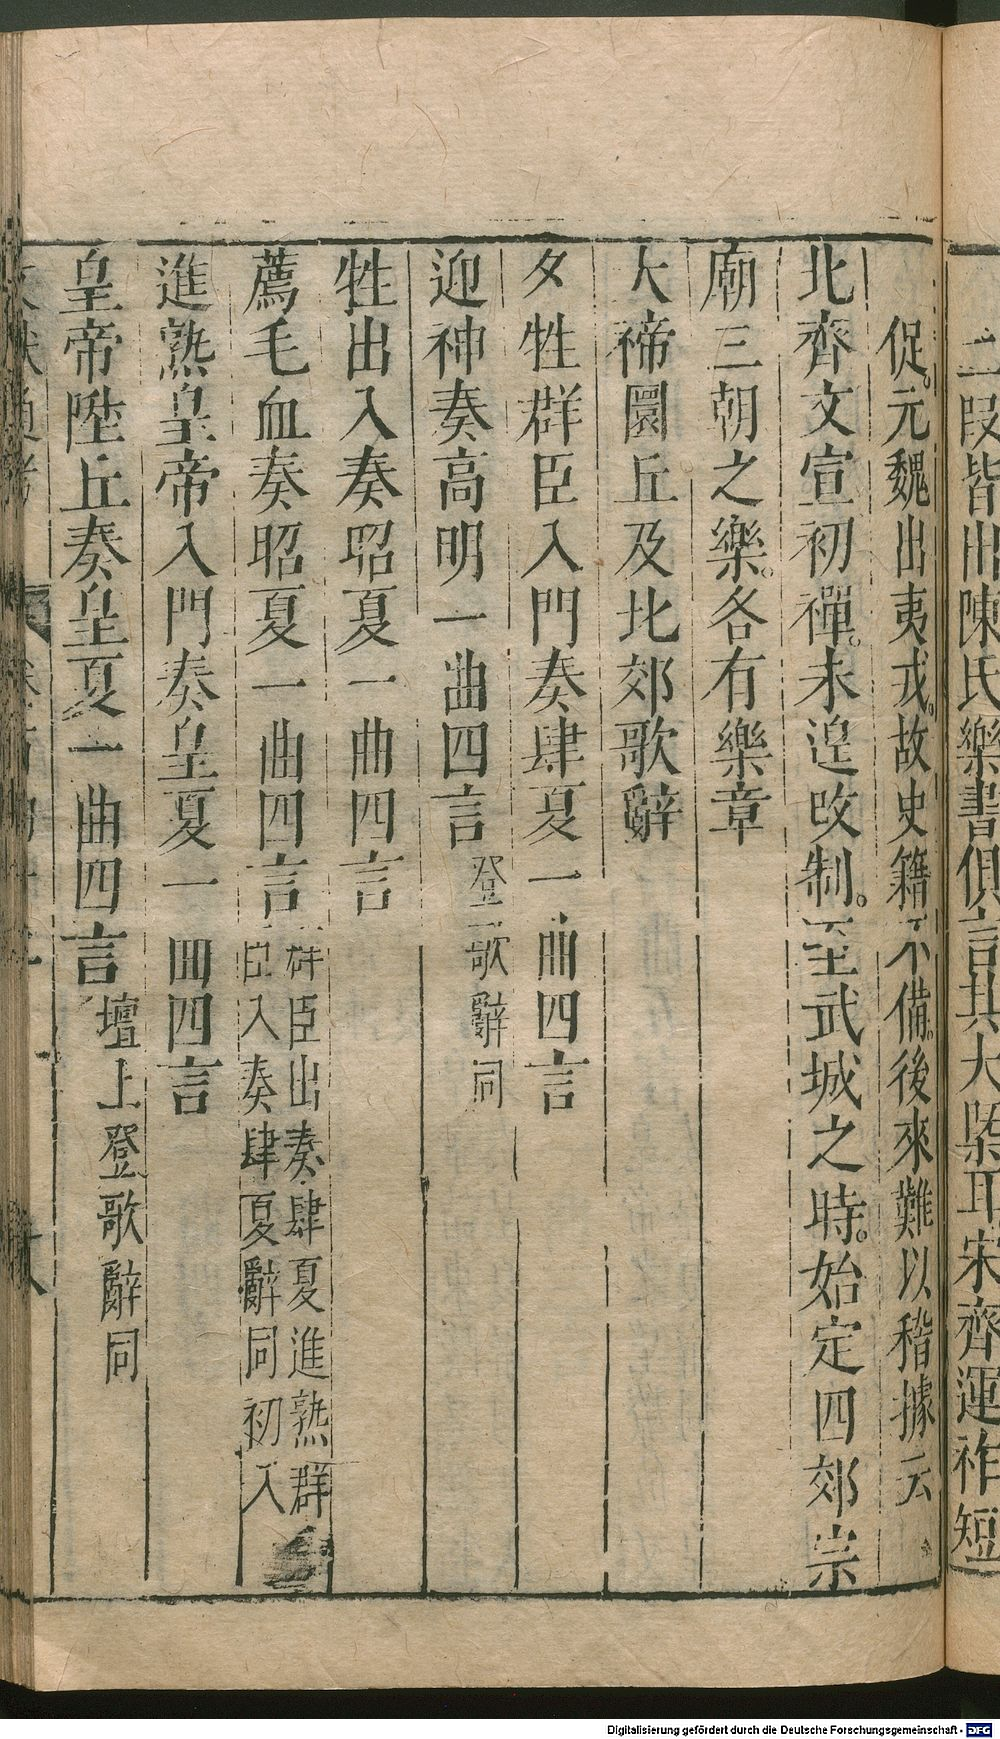 二段皆出陳氏樂書俱言其大槩耳宋齊運祚短
促元魏出夷戎故史籍不備後來難以稽據云
北齊文宣初禪未遑改制至武城之時始定四郊宗
廟三朝之樂各有樂章
大禘圜丘及北郊歌辭
夕牲群臣入門奏肆夏一曲四言
迎神奏高明一曲四言登歌辭同
牲出入奏昭夏一曲四言
薦毛血奏昭夏一曲四言群臣出奏肆夏進熟群
臣入奏肆夏辭同初入
進熟皇帝入門奏皇夏一曲四言
皇帝陞丘奏皇夏一曲四言壇上登歌辭同
Digitalisierung gefördert durch die Deutsche Forschungsgemeinschaft - DFG